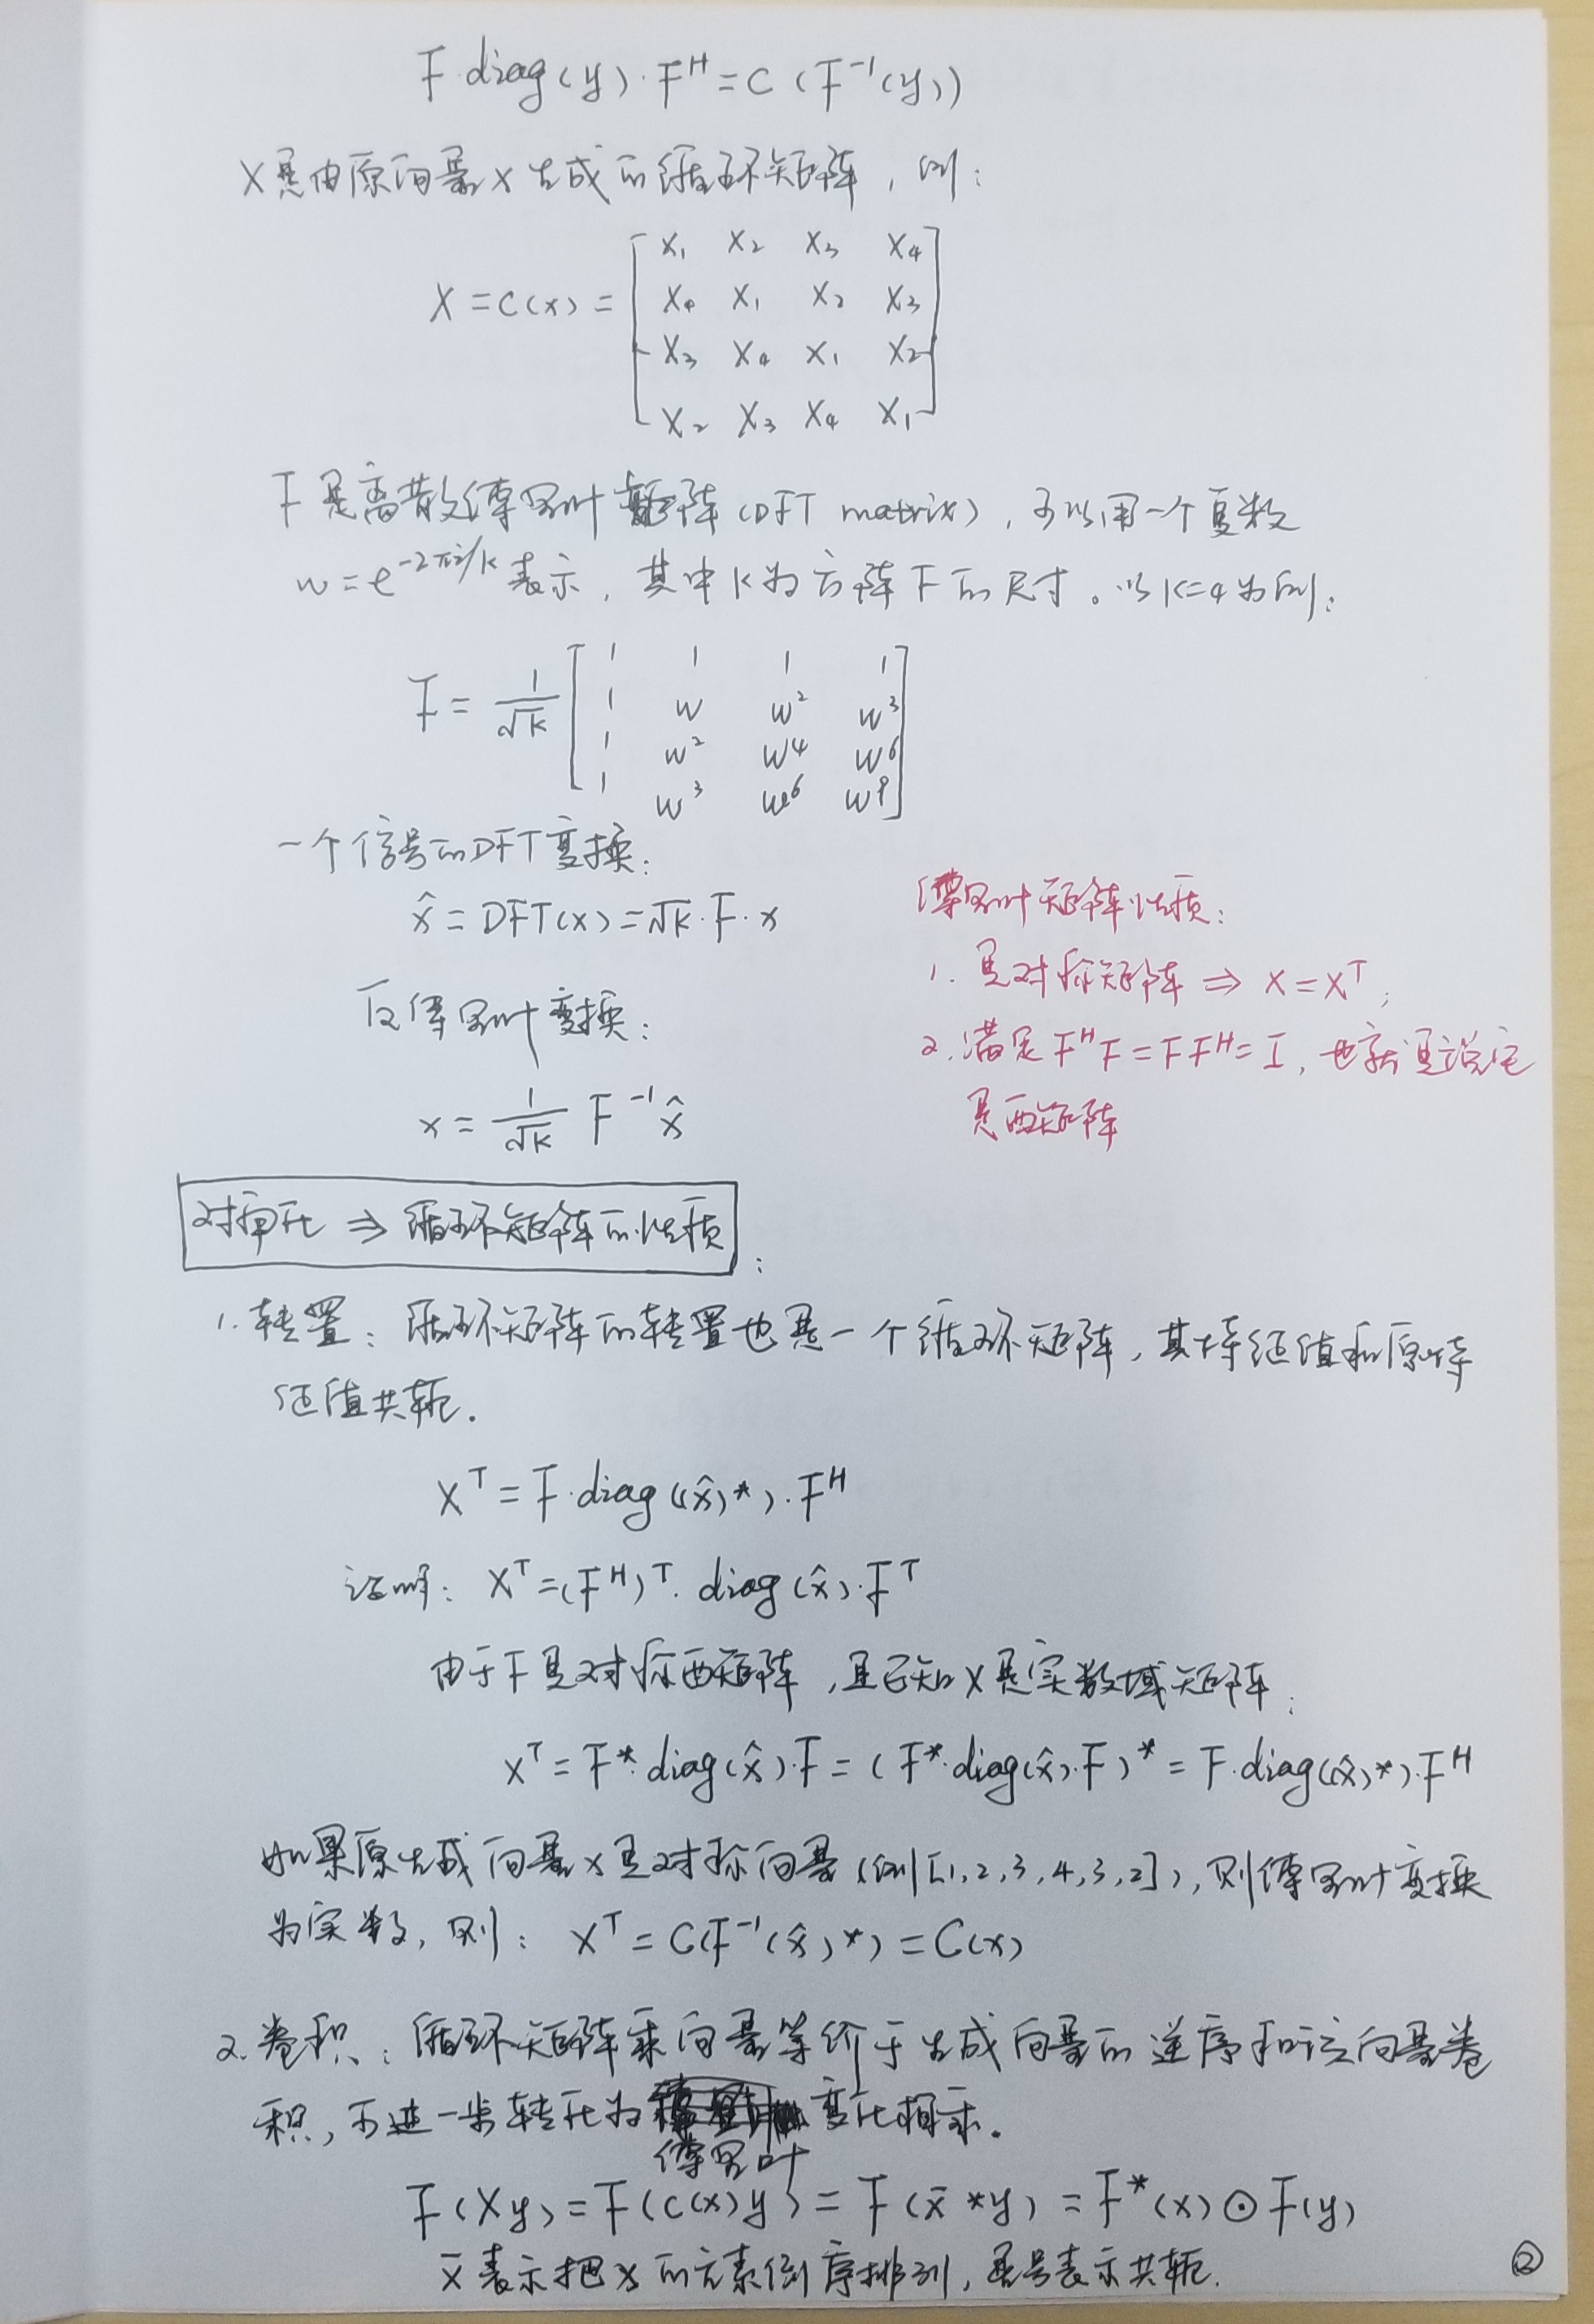 F·diag(y)·F^H = C(F^-1(y))
X是由原向量x生成的循环矩阵，例：
X = C(x) = [ x₁ x₂ x₃ x₄
x₄ x₁ x₂ x₃
x₃ x₄ x₁ x₂
x₂ x₃ x₄ x₁ ]
F是离散傅里叶矩阵(DFT matrix)，可以用一个复数
w = e^{-2πi/k} 表示，其中K为方阵F的尺寸。以K=4为例：
F = 1/√K [ 1 1 1 1
1 w w² w³
1 w² w⁴ w⁶
1 w³ w⁶ w⁹ ]
一个信号的DFT变换：
x̂ = DFT(x) = √K·F·x
反傅里叶变换：
x = 1/√K F^-1 x̂
傅里叶矩阵性质：
1. 是对称矩阵 ⇒ X = X^T；
2. 满足F^H F = F F^H = I，也就是说它
是酉矩阵
对角化 ⇒ 循环矩阵的性质：
1. 转置：循环矩阵的转置也是一个循环矩阵，其特征值和原特
征值共轭.
X^T = F·diag((x̂)*)·F^H
证明：X^T = (F^H)^T·diag(x̂)·F^T
由于F是对称酉矩阵，且已知X是实数域矩阵；
X^T = F*·diag(x̂)·F = (F*·diag(x̂)·F)* = F·diag((x̂)*)·F^H
如果原生成向量x是对称向量(例[1,2,3,4,3,2])，则傅里叶变换
为实数，则：X^T = C(F^-1(x̂)*) = C(x)
2. 卷积：循环矩阵乘向量等价于生成向量的逆序和该向量卷
积，可进一步转化为傅里叶变化相乘。
F(Xy) = F(C(x)y) = F(x̄*y) = F*(x)⊙F(y)
x̄表示把x的元素倒序排列，星号表示共轭.
②